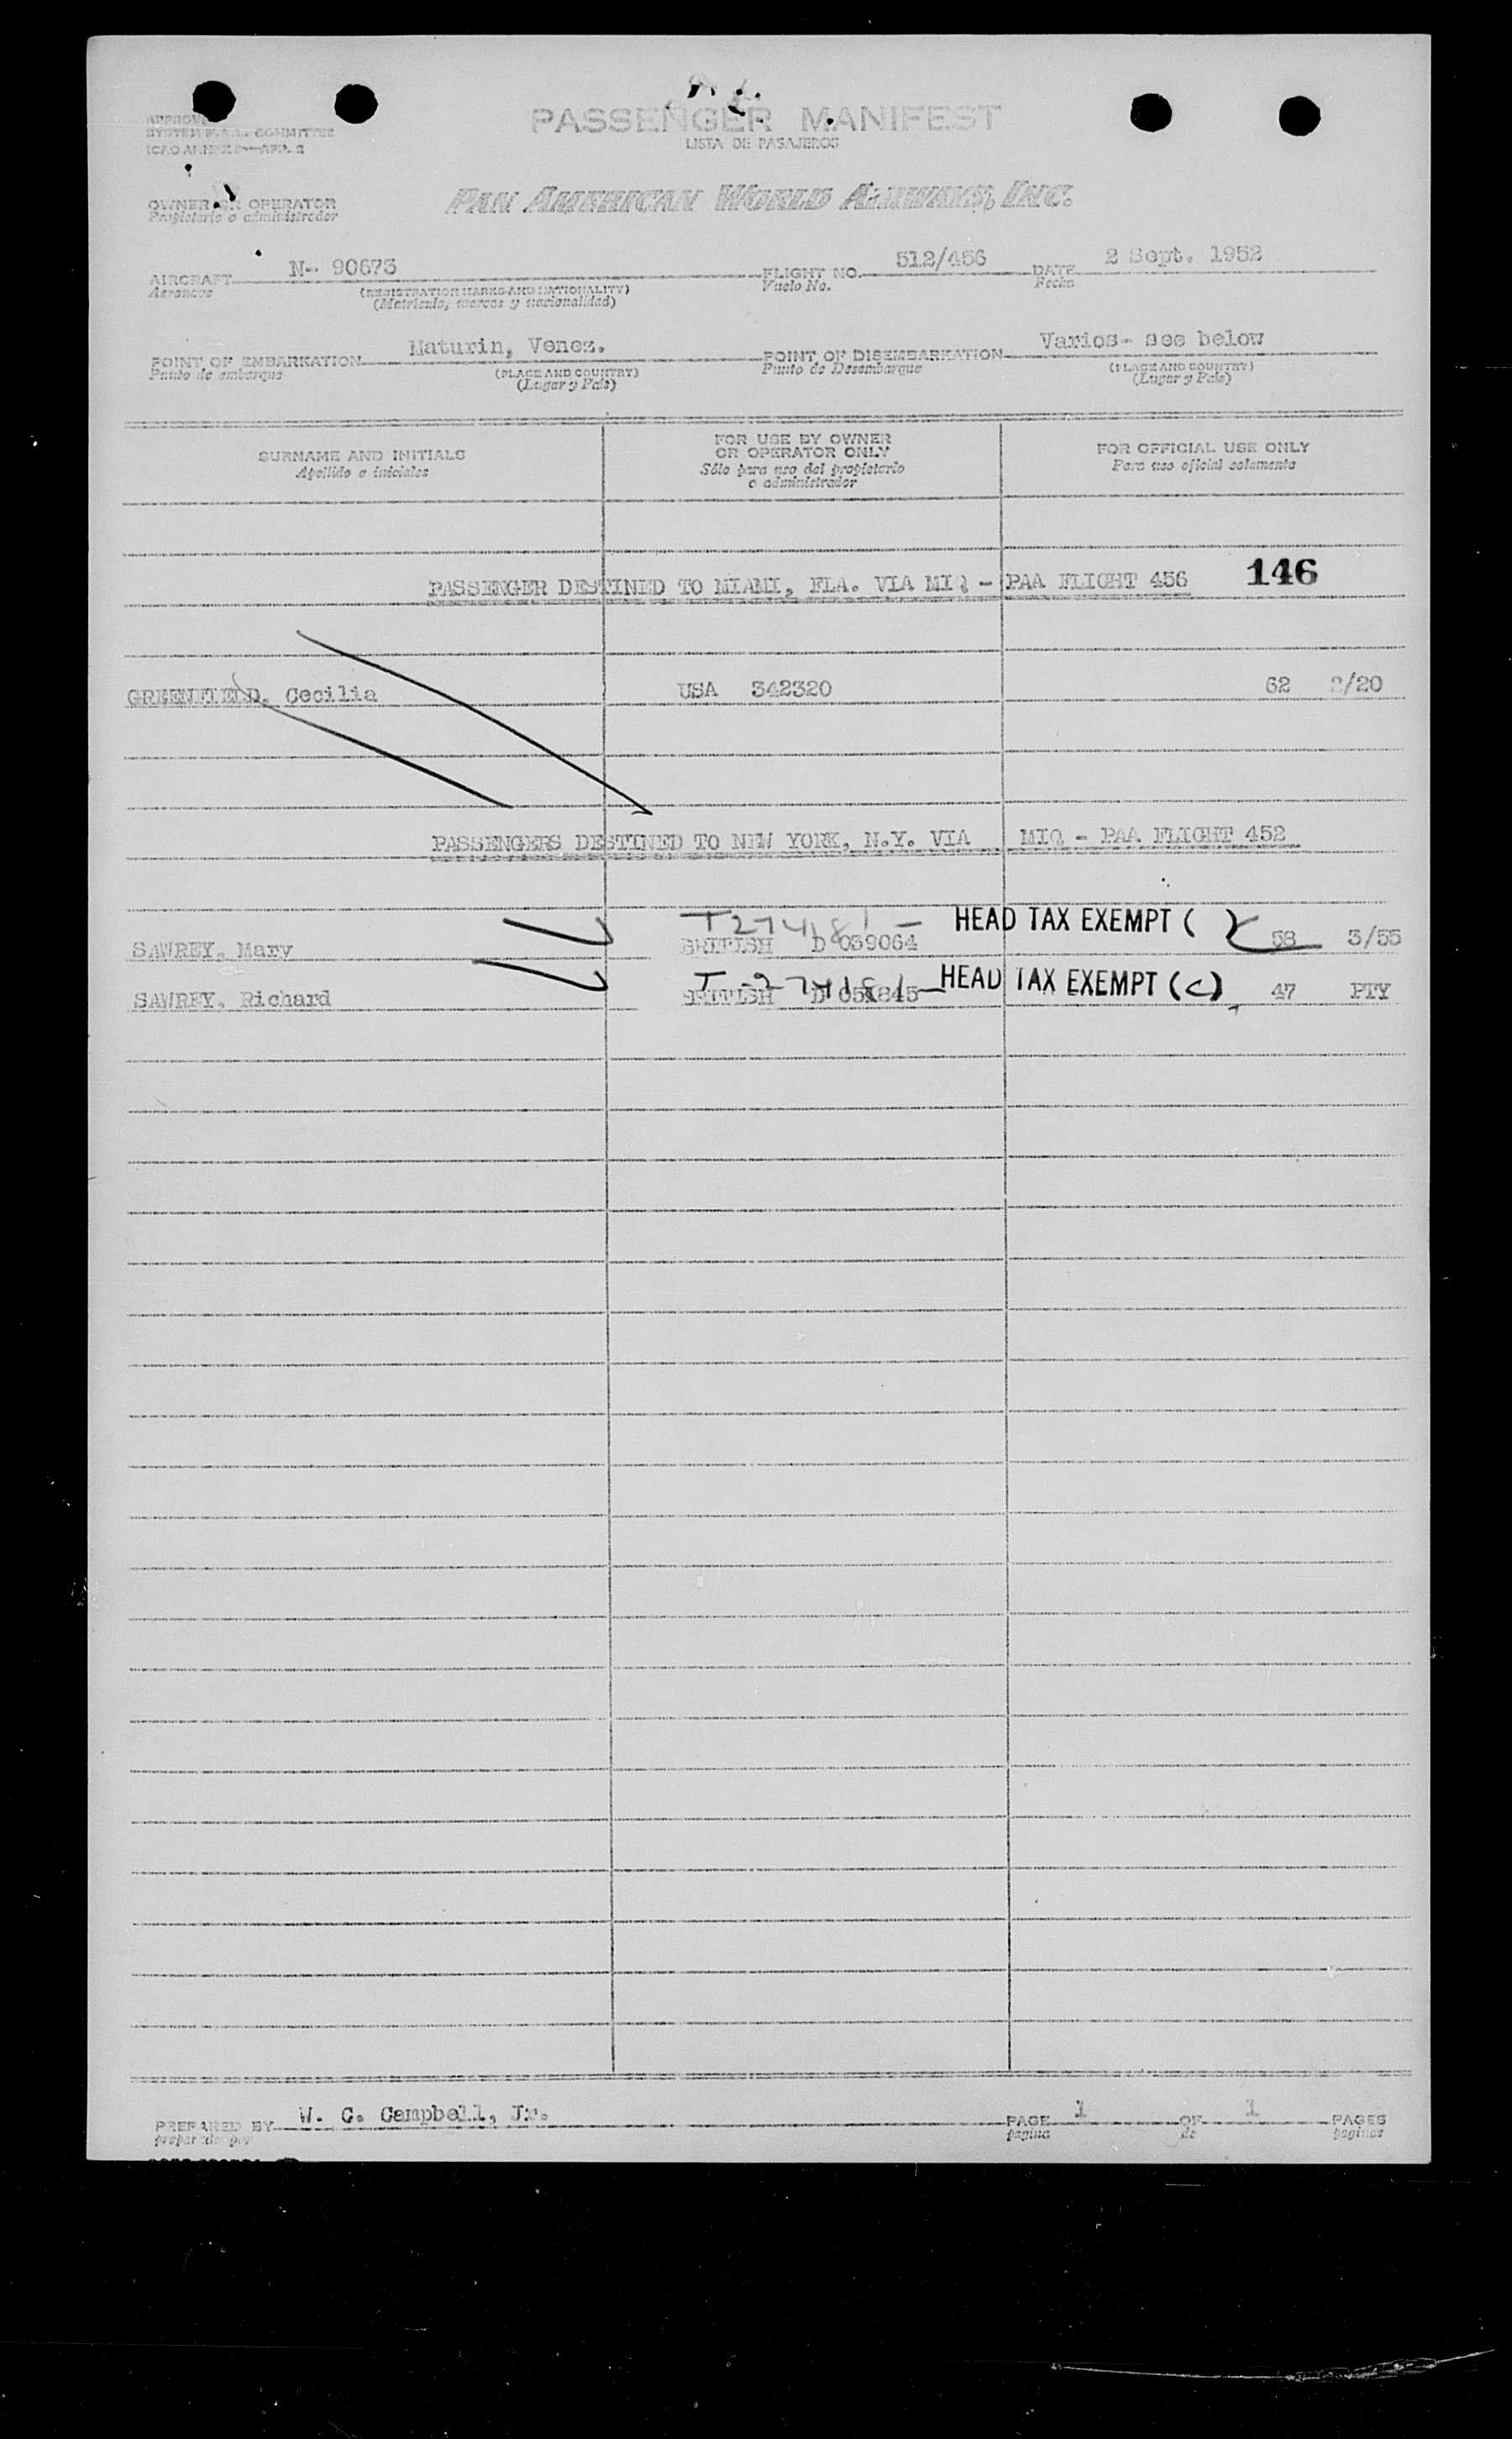 PASSENGER MANIFEST
LISTA DE PASAJEROS
APPROVED
COMMITTEE
ICAO ANNEX 9—APP. 2
OWNER OR OPERATOR
Propietario o administrador
PAN AMERICAN WORLD AIRWAYS, INC.
AIRCRAFT N- 90673 FLIGHT NO. 512/456 DATE 2 Sept. 1952
Aeronave (REGISTRATION MARKS AND NATIONALITY) Vuelo No. Fecha
(Matricula, marcas y nacionalidad)
POINT OF EMBARKATION Maturin, Venez. POINT OF DISEMBARKATION Varios- see below
Punto de embarque (PLACE AND COUNTRY) Punto de Desembarque (PLACE AND COUNTRY)
(Lugar y País) (Lugar y País)
SURNAME AND INITIALS FOR USE BY OWNER OR OPERATOR ONLY FOR OFFICIAL USE ONLY
Apellido e iniciales Sólo para uso del propietario o administrador Para uso oficial solamente
PASSENGER DESTINED TO MIAMI, FLA. VIA MIQ - PAA FLIGHT 456 146
GREENFIELD, Cecilia USA 342320 62 2/20
PASSENGERS DESTINED TO NEW YORK, N.Y. VIA MIQ - PAA FLIGHT 452
T274181 - HEAD TAX EXEMPT ( )
SAWREY, Mary BRITISH D 039064 58 3/55
T-274181- HEAD TAX EXEMPT (C)
SAWREY, Richard BRITISH D 051845 47 PTY
PREPARED BY W. C. Campbell, Jr. PAGE 1 OF 1 PAGES
preparado por pagina de paginas